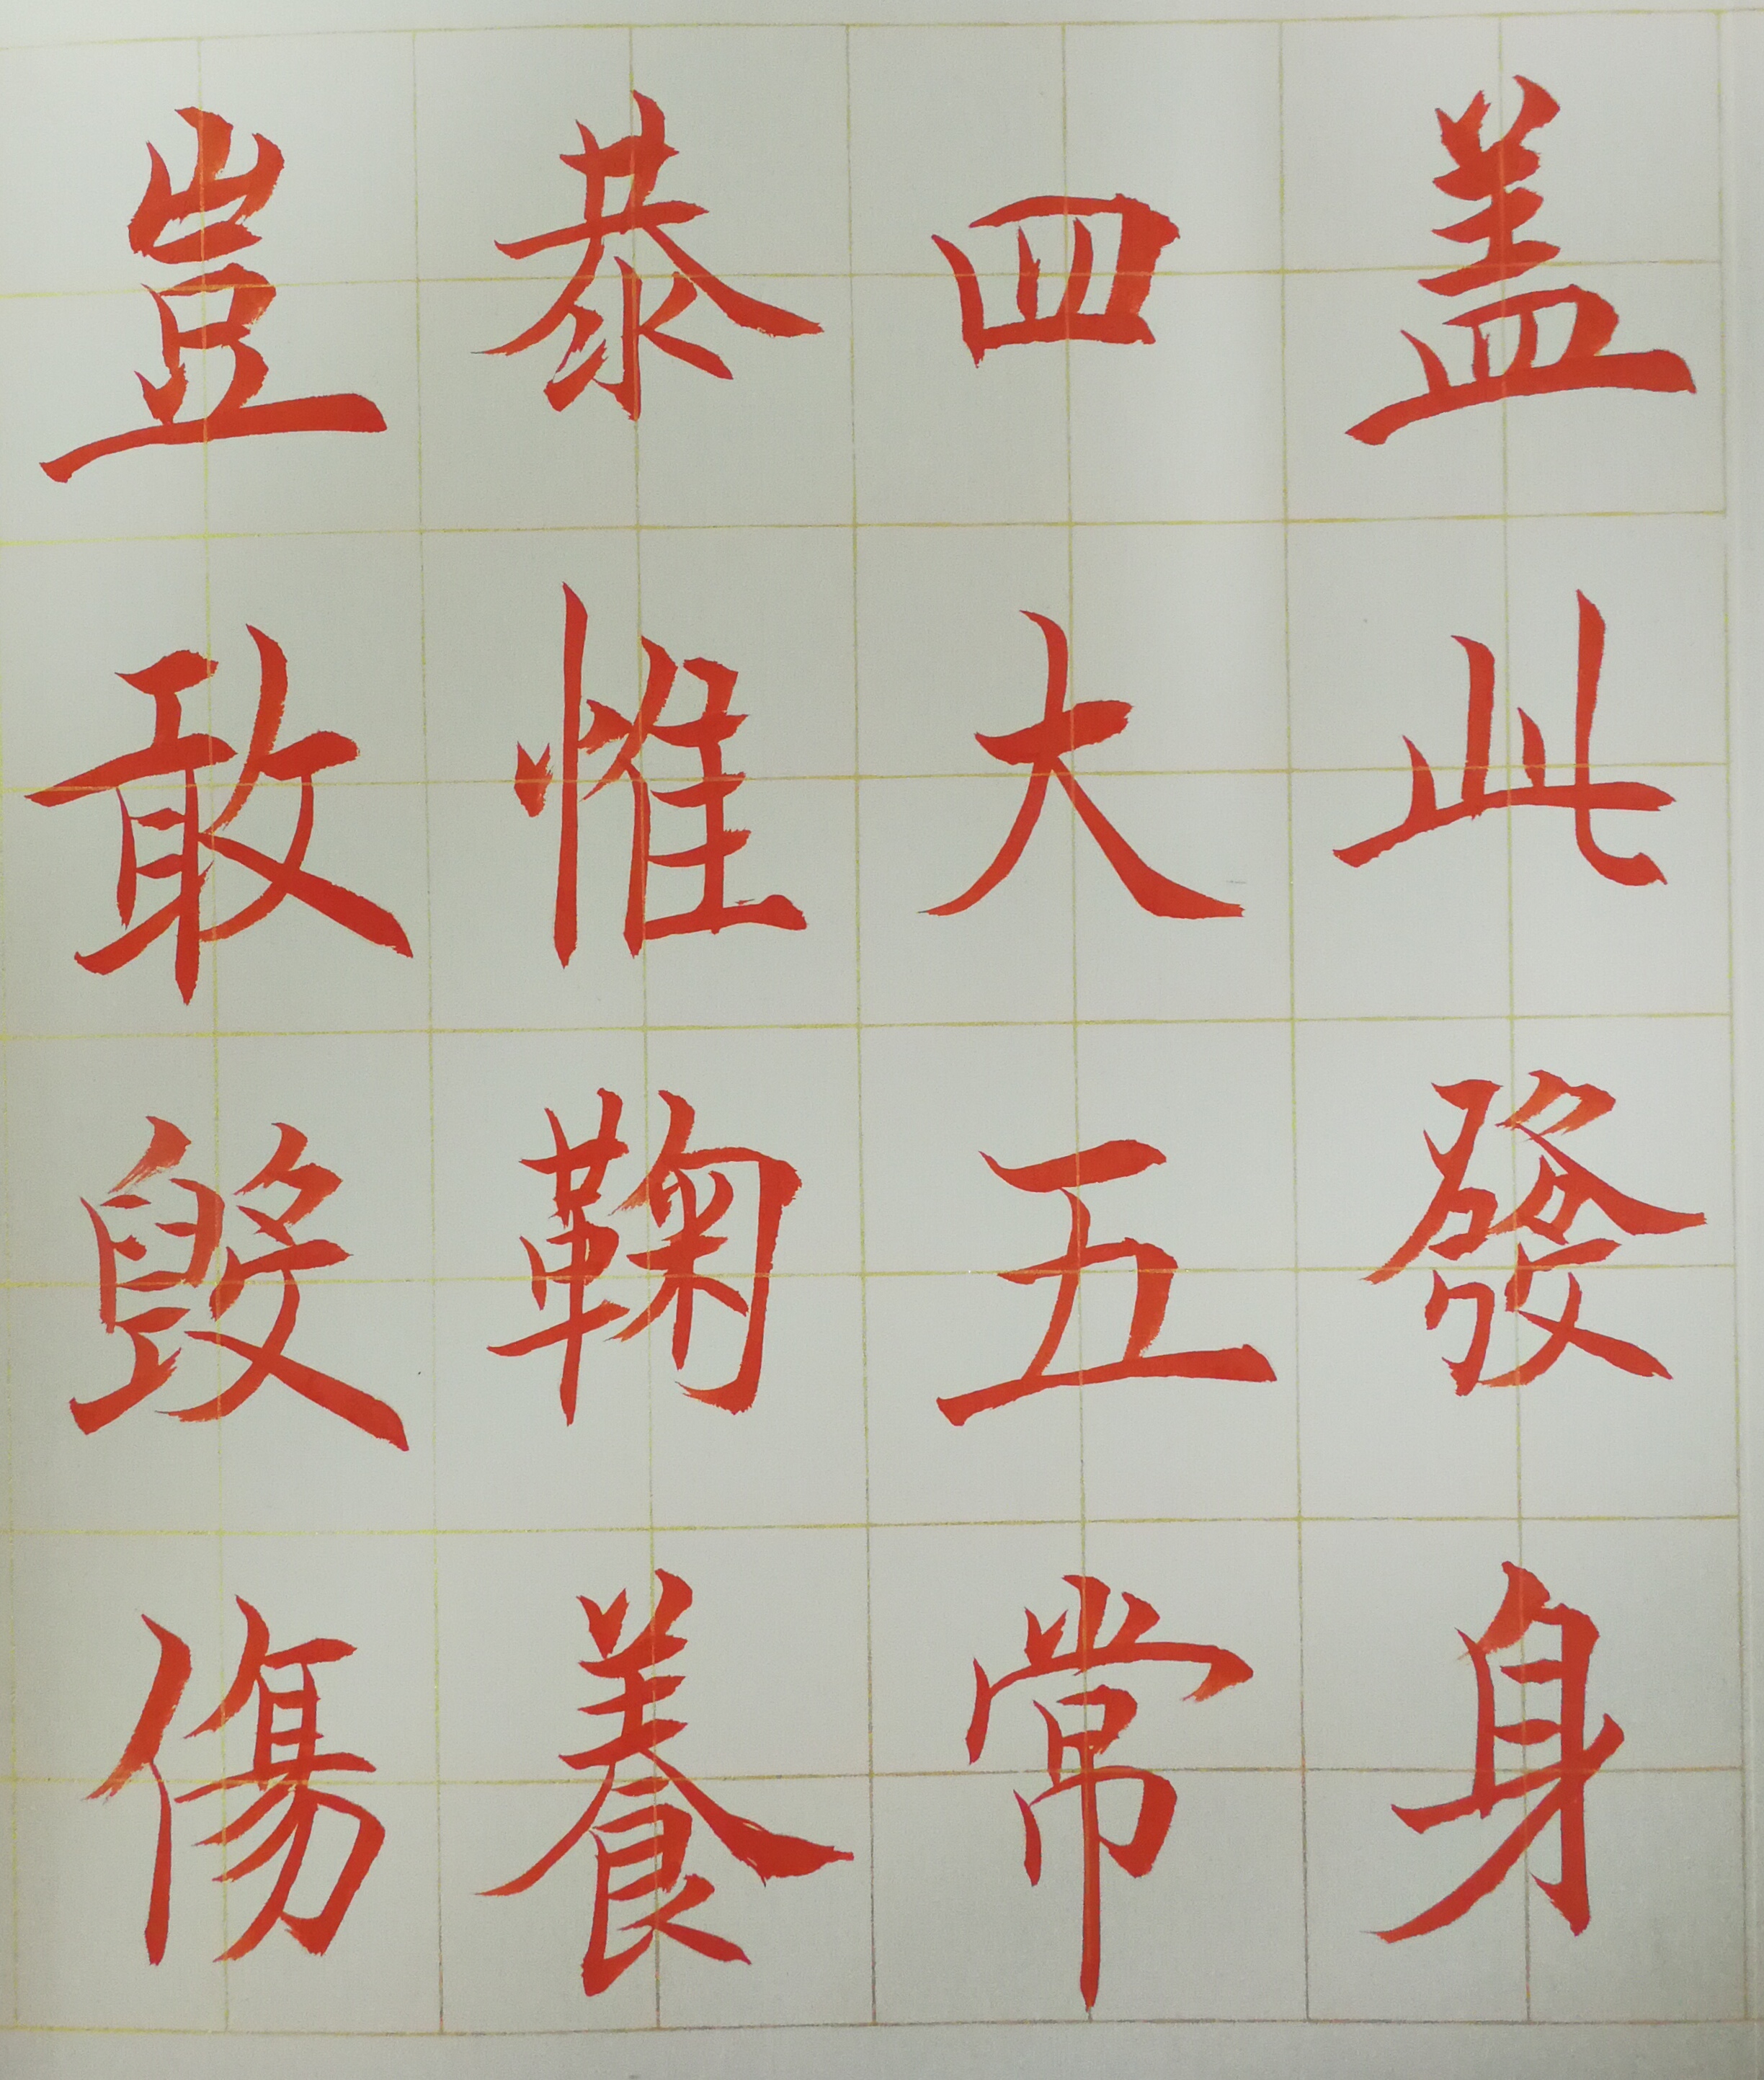 盖此發身
四大五常
恭惟鞠養
豈敢毀傷